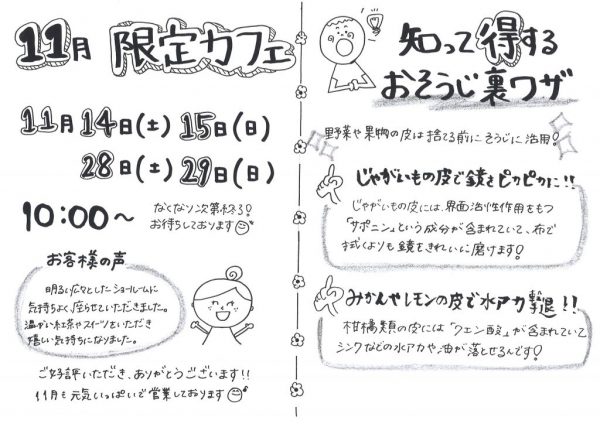 11月 限定カフェ
11月14日(土) 15日(日)
28日(土) 29日(日)
10:00〜
なくなり次第終る!
お待ちしております
お客様の声
明るい広々としたショールームに
気持ちよく座らせていただきました。
温かい紅茶やスイーツをいただき
嬉しい気持ちになりました。
ご好評いただき、ありがとうございます!!
11月も元気いっぱいで営業しております
知って得する
おそうじ裏ワザ
野菜や果物の皮は捨てる前にそうじに活用!
じゃがいもの皮で鏡をピカピカに!!
じゃがいもの皮には、界面活性作用をもつ
「サポニン」という成分が含まれていて、布で
拭くよりも鏡をきれいに磨けます!
みかんやレモンの皮で水アカ撃退!!
柑橘類の皮には「クエン酸」が含まれていて
シンクなどの水アカや油が落とせるんです!